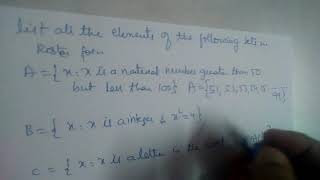 list all the elements of the following sets in
Roster form
A = { x : x is a natural number greater than 50
but less than 100} A = {51, 52, 53, 54, 55
B = { x : x is a integer & x² = 4}
C = { x : x is a letter in the